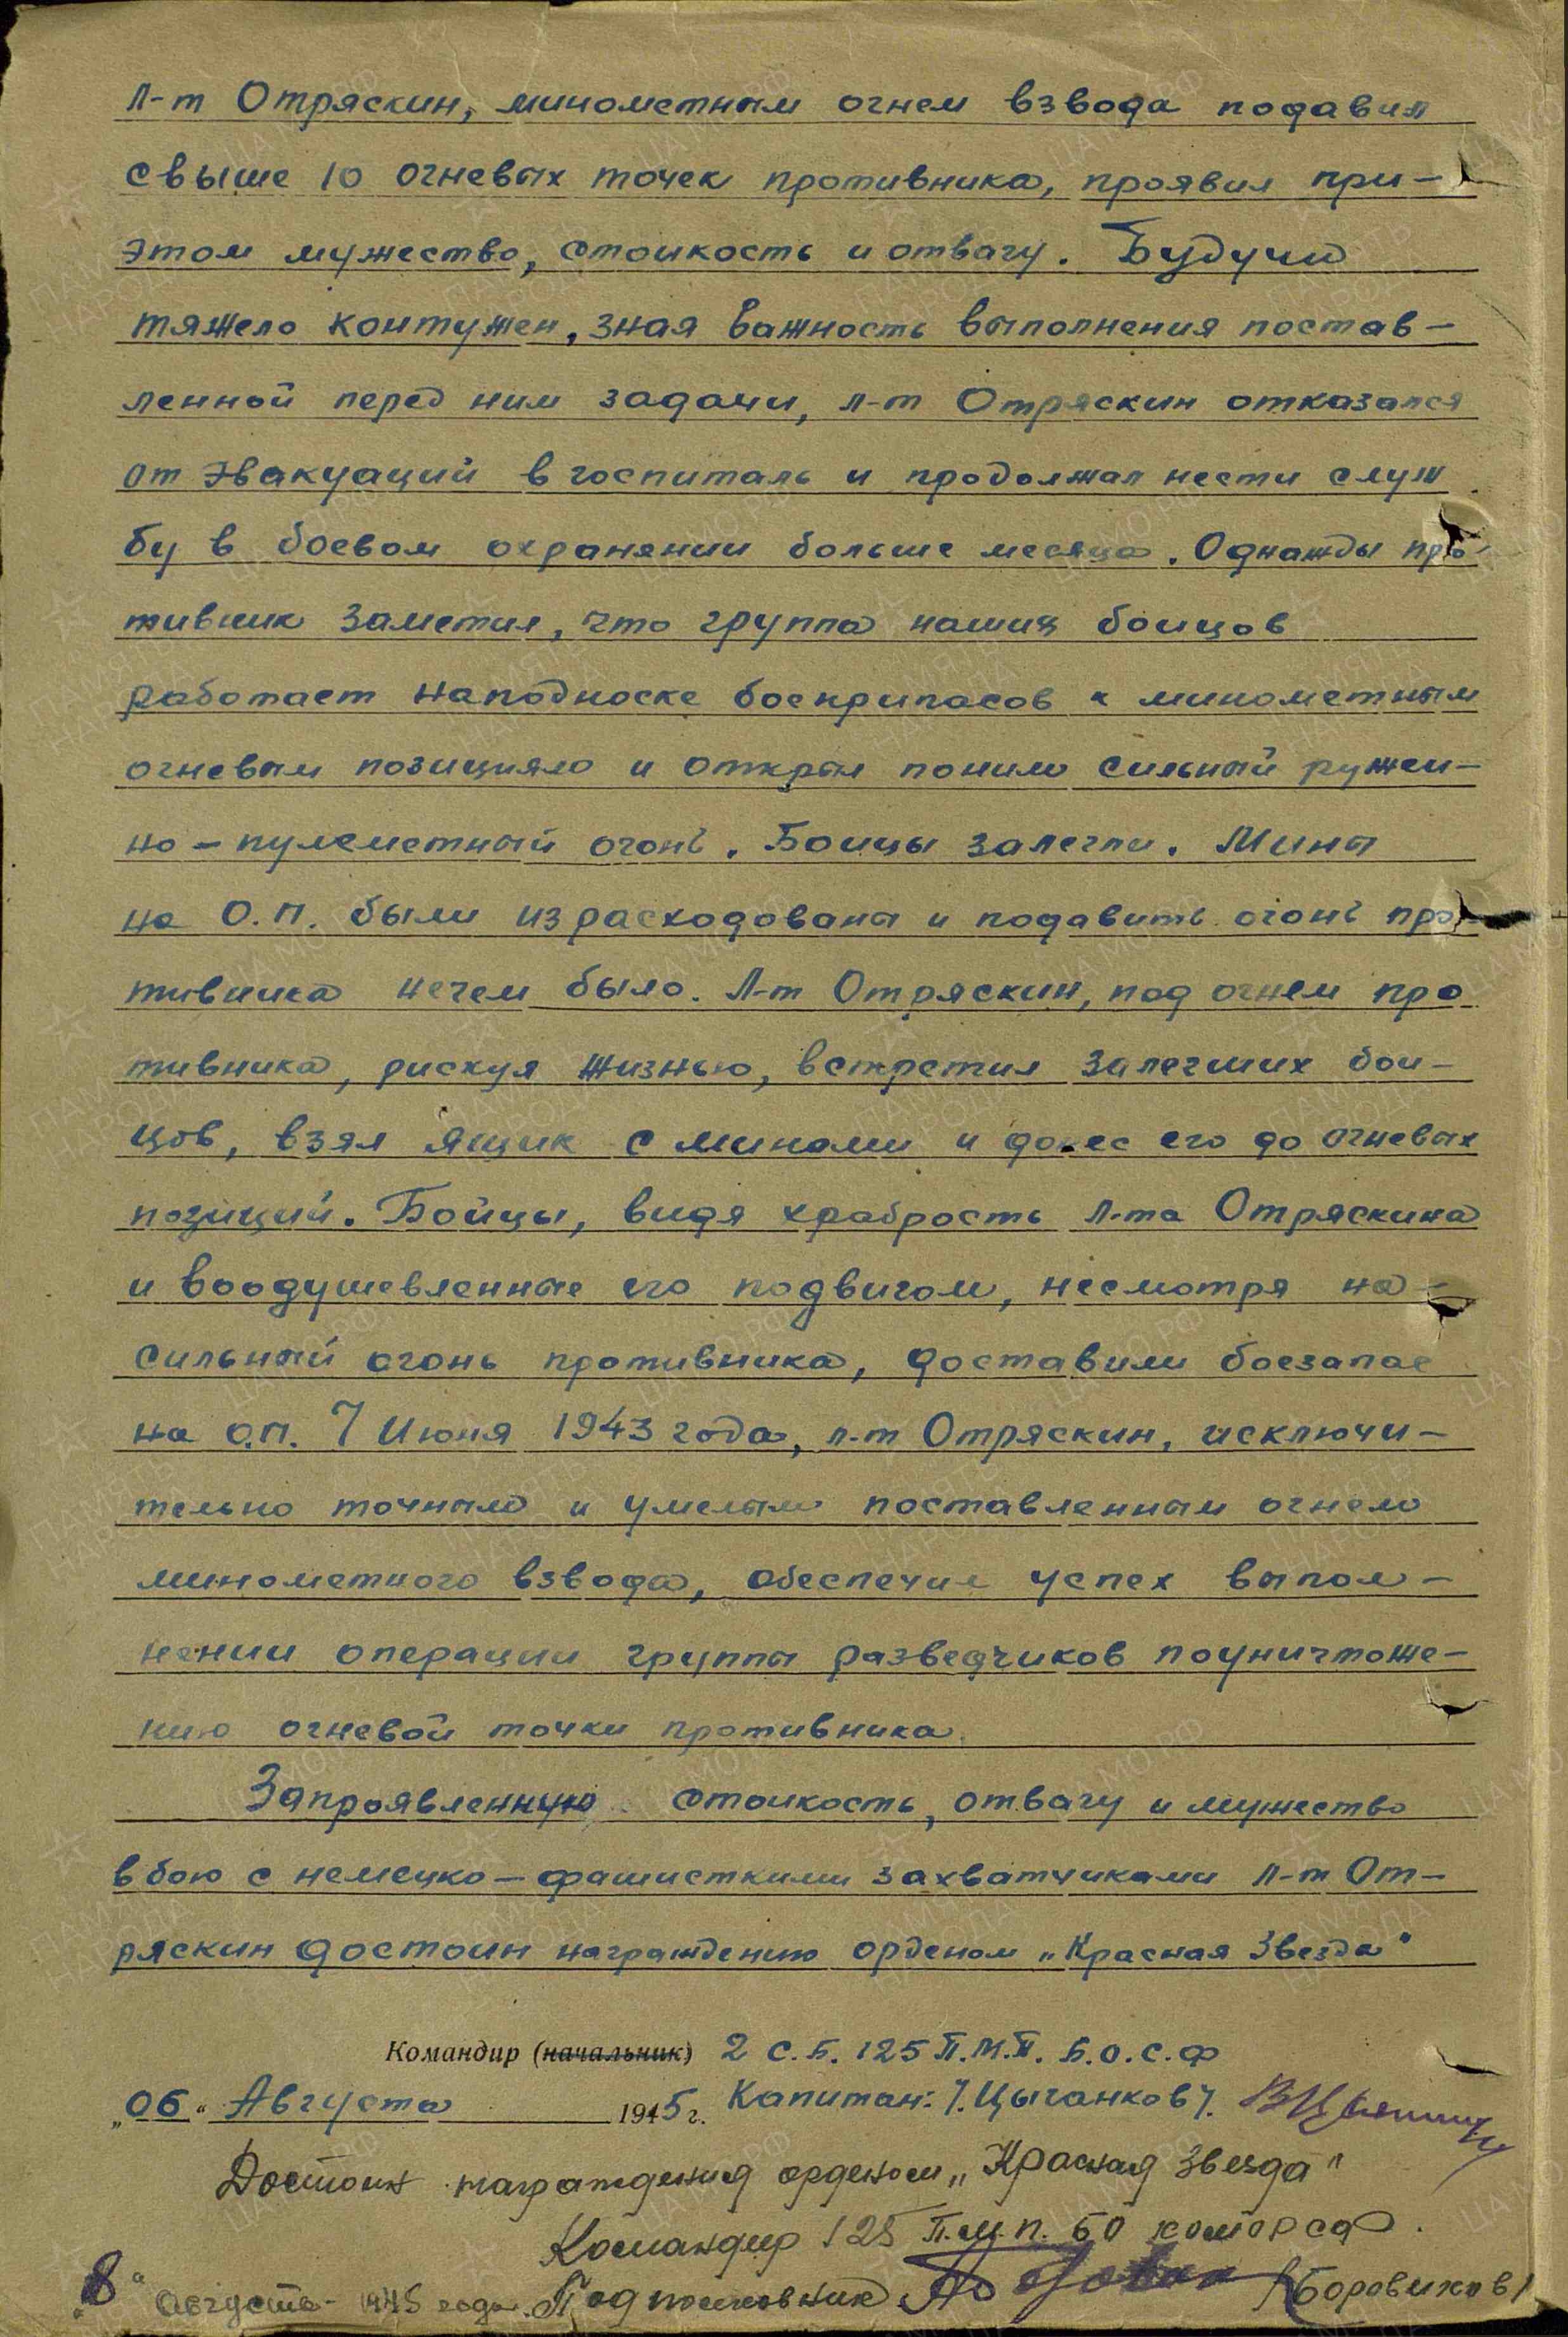 Л-т Отряскин, минометным огнем взвода подавил
свыше 10 огневых точек противника, проявил при-
этом мужество, стоикость и отвагу. Будучи
тяжело контужен, зная важность выполнения постав-
ленной перед ним задачи, л-т Отряскин отказался
от эвакуаций в госпиталь и продолжал нести служ
бу в боевом охранении больше месяца. Однажды про-
тивник заметил, что группа наших боицов
работает наподноске боеприпасов к минометным
огневым позициям и открыл поним сильный ружеи-
но-пулеметный огонь. Боицы залегли. Мины
на О.П. были израсходованы и подавить огонь про-
тивника нечем было. Л-т Отряскин, под огнем про
тивника, рискуя жизнью, встретил залегших бои-
цов, взял ящик с минами и донес его до огневых
позиций. Бойцы, видя храбрость л-та Отряскина
и воодушевленные его подвигом, несмотря на-
сильный огонь противника, доставили боезапас
на О.П. 7 Июня 1943 года, л-т Отряскин, исключи-
тельно точным и умелым поставленным огнем
минометного взвода, обеспечил успех выпол-
нении операции группы разведчиков поуничтоже-
нию огневой точки противника.
Запроявленную стоикость, отвагу и мужество
в бою с немецко-фашисткими захватчиками л-т От-
ряскин достоин награждению орденом „Красная Звезда"
Командир (начальник) 2 С.Б. 125 П.М.П. Б.О.С.Ф
„06" Августа 1945 г. Капитан: /.Цыганков/.
Достоин награждения орденом „Красная Звезда"
Командир 125 П.М.П. БО
„8" Августа 1945 года. Подполковник /Боровиков/
ПАМЯТЬ НАРОДА
ЦА МО РФ